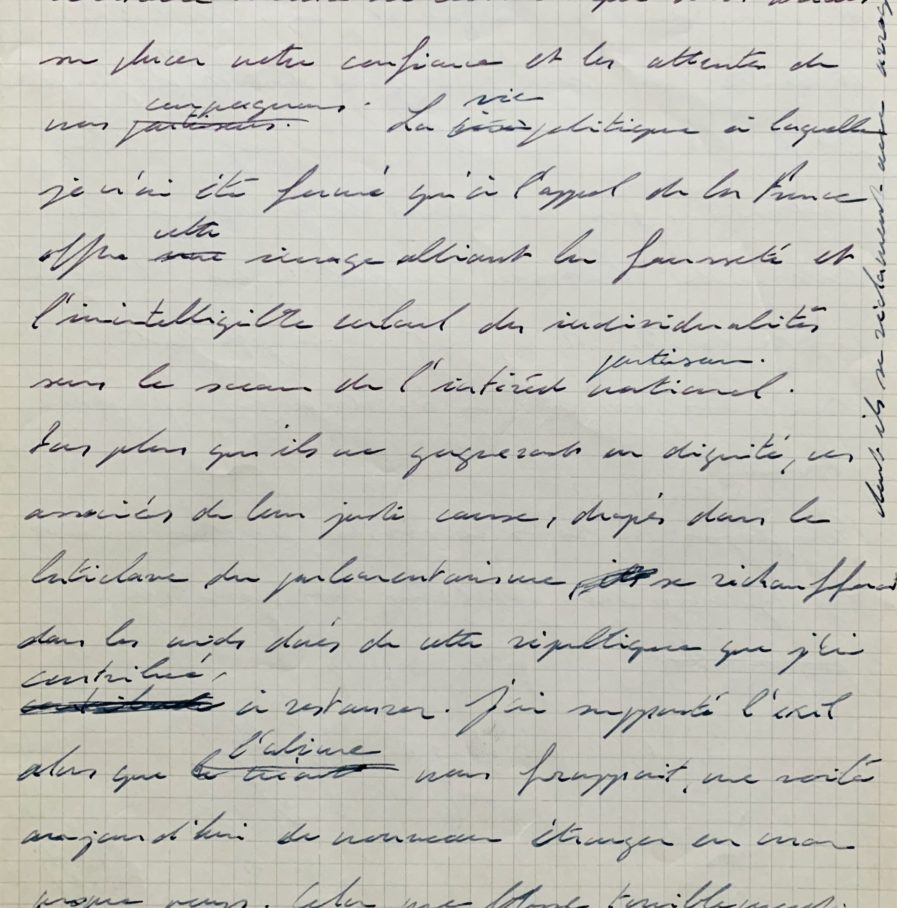 su placer notre confiance et les attentes de
nos partisans. compagnons. La vie politique à laquelle
je n'ai été formé qu'à l'appel de la France
offre cette image alliant la fausseté et
l'inintelligible calcul des individualités
sous le sceau de l'intérêt national. partisan.
Pas plus qu'ils ne gagneront en dignité, ces
associés de leur juste cause, drapés dans le
laticlave du parlementarisme, se réchauffent
dans les nids dorés de cette république que j'ai
contribué, à restaurer. J'ai supporté l'exil
alors que l'abîme nous frappait, me voilà
aujourd'hui de nouveau étranger en mon
propre pays. Cela me blesse terriblement.
dont ils se réclament avec